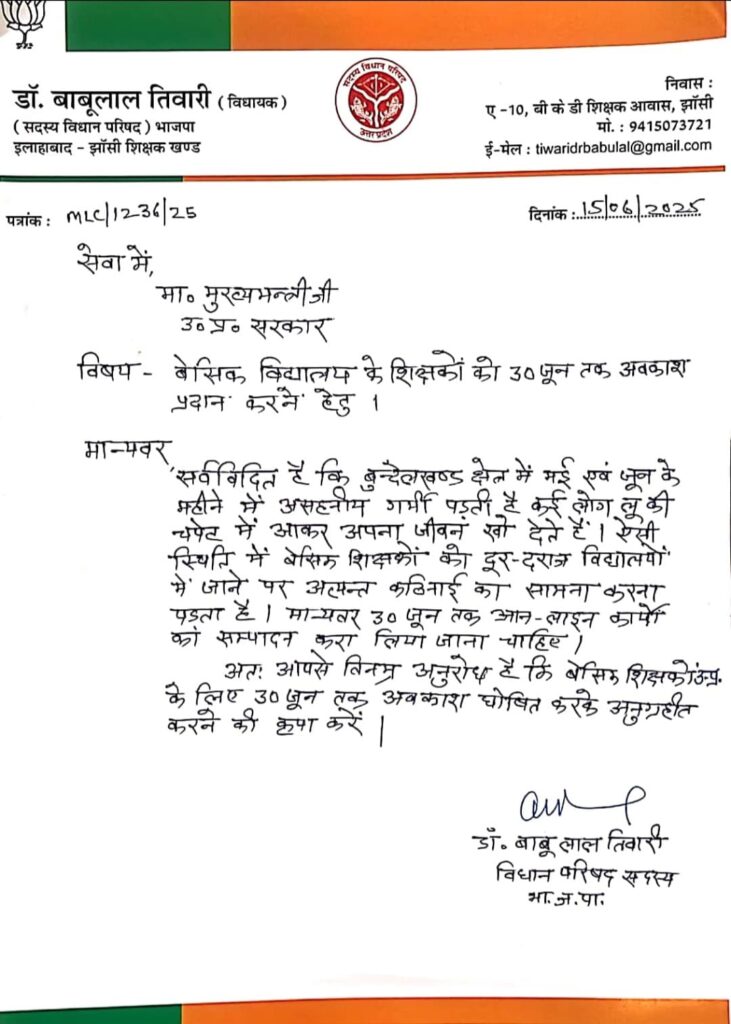 डॉ. बाबूलाल तिवारी ( विधायक )
( सदस्य विधान परिषद ) भाजपा
इलाहाबाद - झाँसी शिक्षक खण्ड
सदस्य विधान परिषद
उत्तर प्रदेश
निवास :
ए -10, बी के डी शिक्षक आवास, झाँसी
मो. : 9415073721
ई-मेल : tiwaridrbabulal@gmail.com
पत्रांक : MLC/1236/25
दिनांक : 15/06/2025
सेवा में,
मा० मुख्यमन्त्री जी
उ० प्र० सरकार
विषय - बेसिक विद्यालय के शिक्षकों को 30 जून तक अवकाश
प्रदान करने हेतु ।
मान्यवर,
सर्वविदित है कि बुन्देलखण्ड क्षेत्र में मई एवं जून के
महीने में असहनीय गर्मी पड़ती है कई लोग लू की
चपेट में आकर अपना जीवन खो देते हैं । ऐसी
स्थिति में बेसिक शिक्षकों को दूर-दराज विद्यालयों
में जाने पर अत्यन्त कठिनाई का सामना करना
पड़ता है । मान्यवर 30 जून तक आन-लाइन कार्यों
का सम्पादन करा लिया जाना चाहिए ।
अतः आपसे विनम्र अनुरोध है कि बेसिक शिक्षकों उ.प्र.
के लिए 30 जून तक अवकाश घोषित करके अनुग्रहीत
करने की कृपा करें ।
डॉ. बाबू लाल तिवारी
विधान परिषद सदस्य
भा.ज.पा.